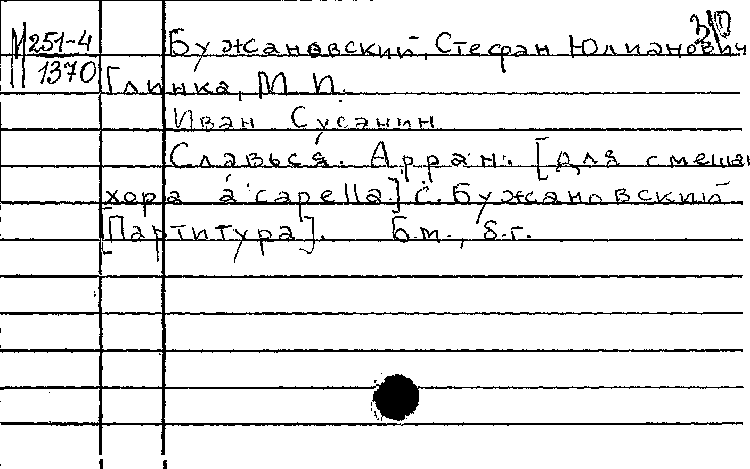 310
М 251-4
1370
Бужановский, Стефан Юлианович
Глинка, М. И.
Иван Сусанин
Славься. Арран. [для смешан
хора a'capella] С. Бужановский
[Партитура]. Б.м., б.г.